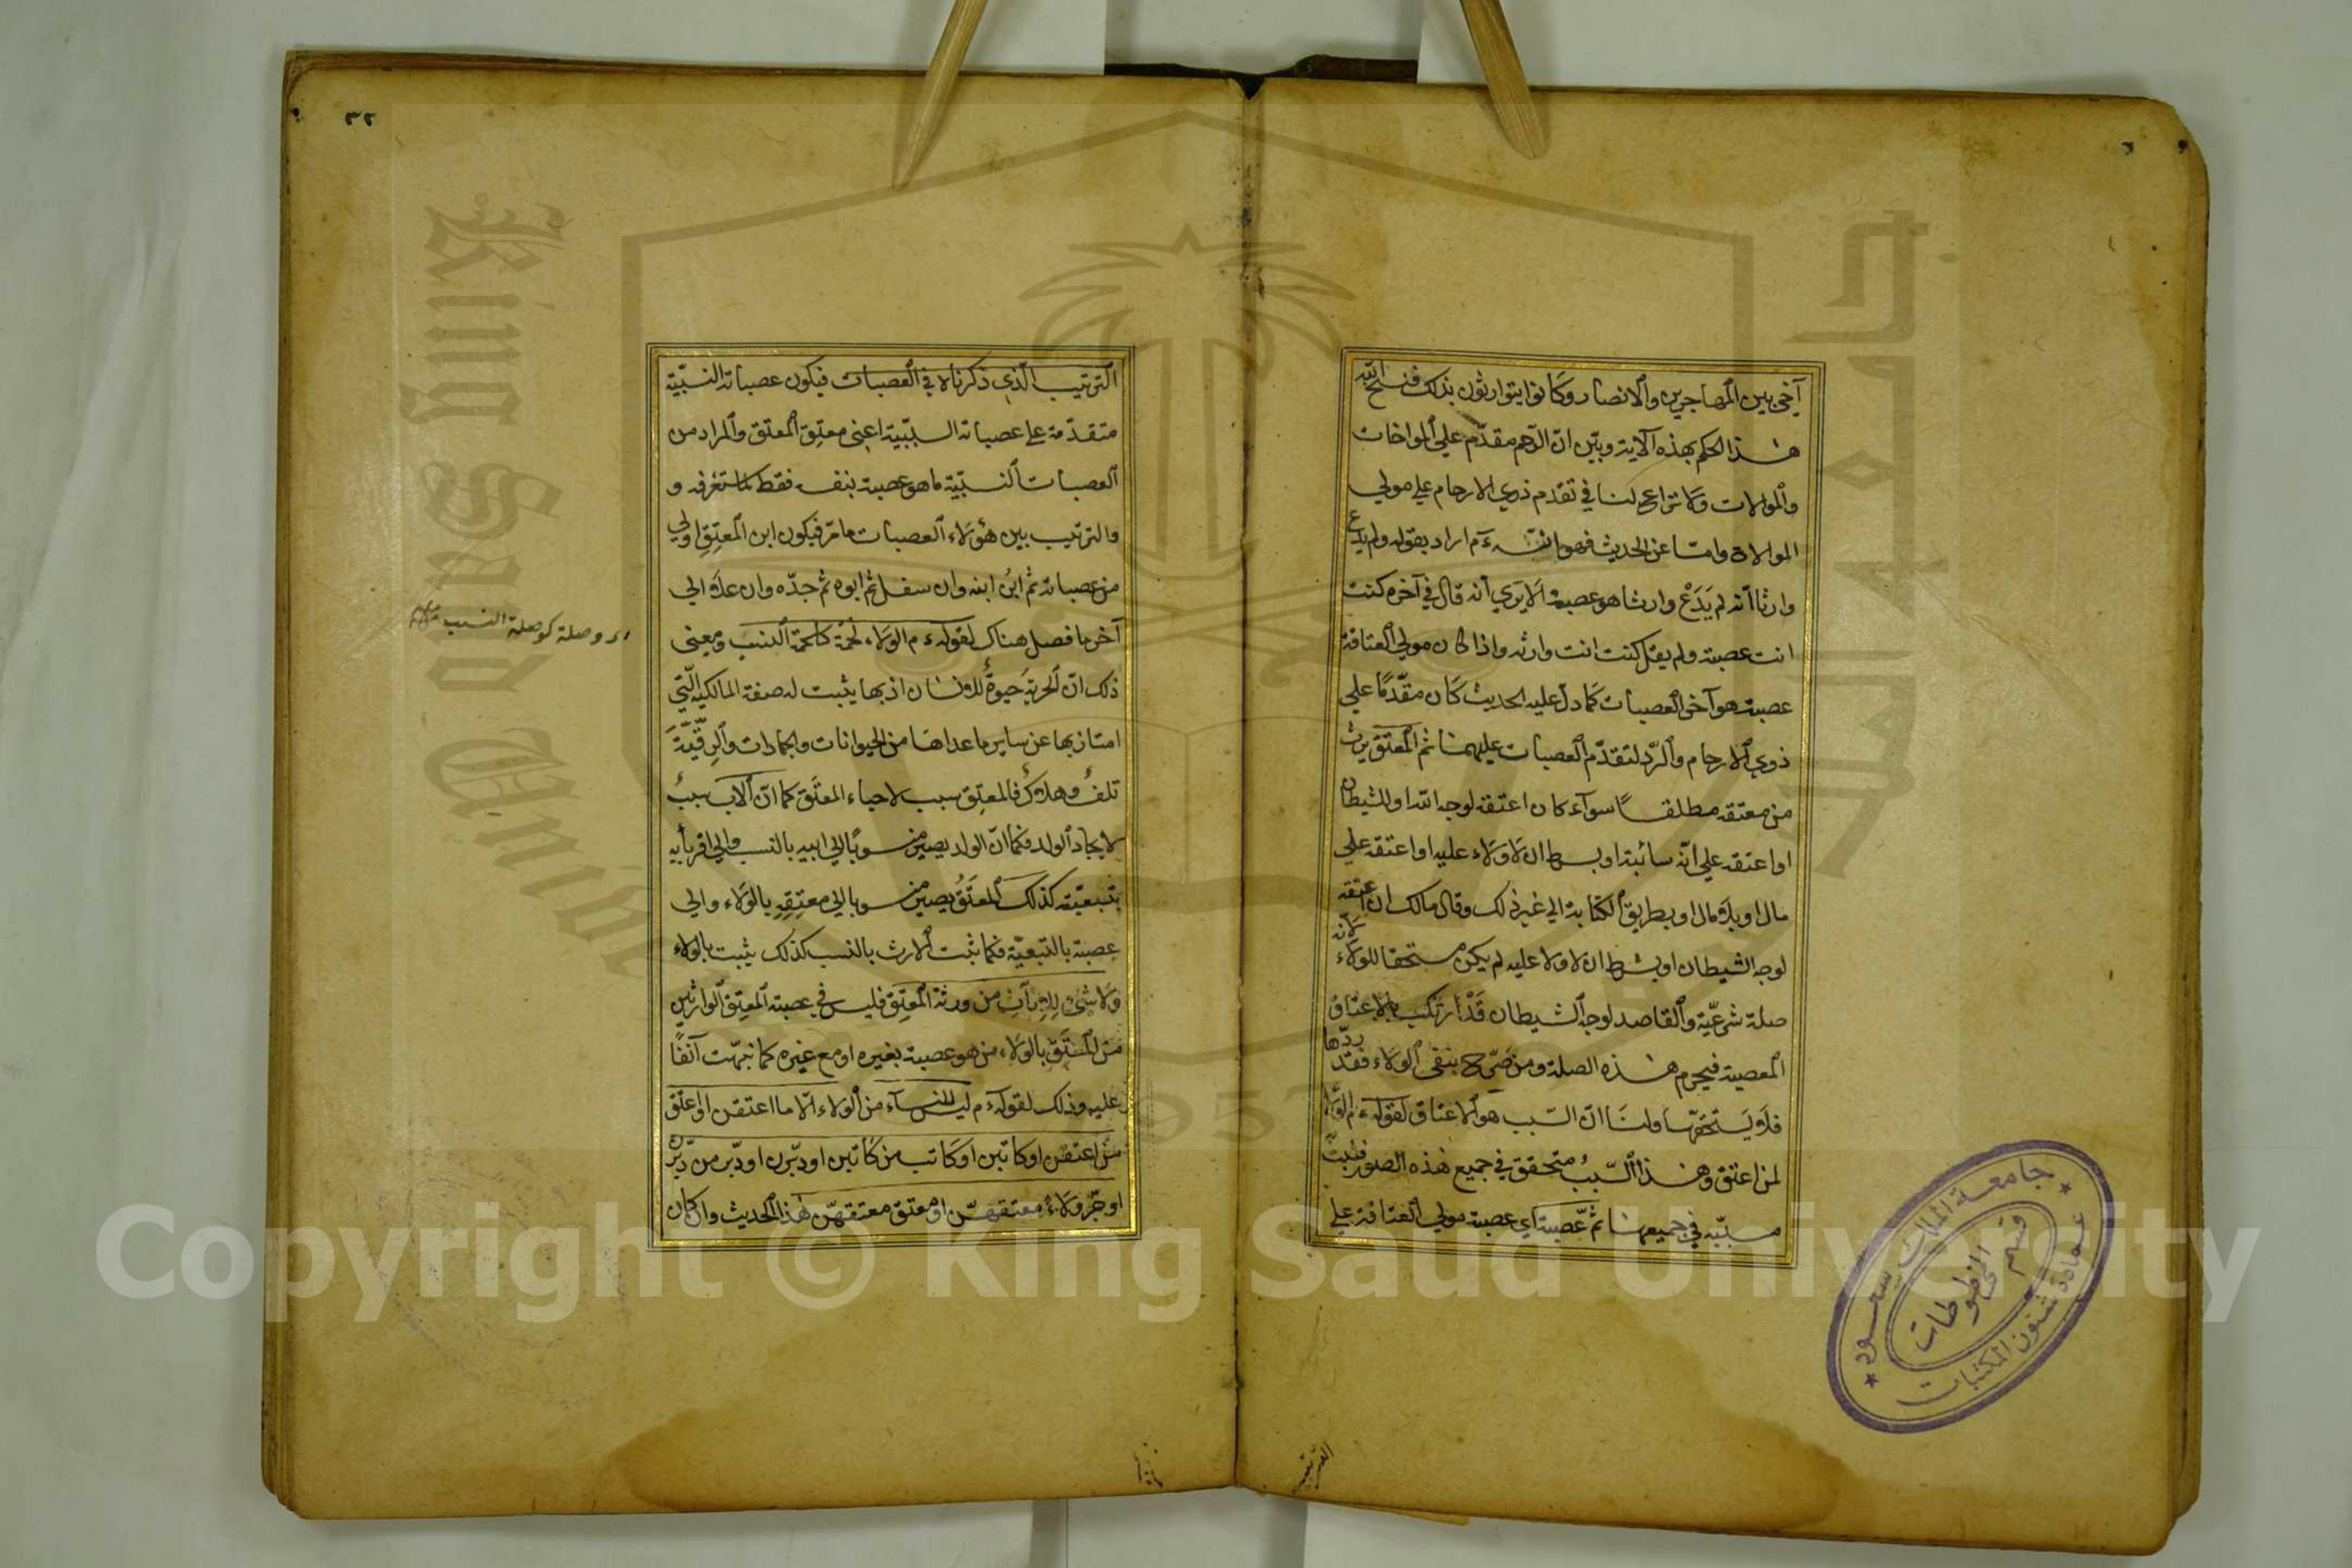 آخى بين المهاجرين والانصار وكانوا يتوارثون بذلك فنسخ الله
هذا الحكم بهذه الآية وبيّن انّ الرّحم مقدّم على المواخات
والموالات ولا نزاع لنا في تقدم ذوي الارحام على مولى
الموالاة وامّا عن الحديث فهو انّه ءم اراد بقوله ولم يدع
وارثا انه لم يَدَعْ وارثا هو عصبة الا يرى أنه قال في آخره كنت
انت عصبته ولم يقل كنت انت وارثه واذا كان مولى العتاقة
عصبة هو آخر العصبات كما دلّ عليه الحديث كان مقدّمًا على
ذوي الارحام والردّ لتقدّم العصبات عليهما ثم المعتق يرث
من معتقه مطلقًا سوآء كان اعتقه لوجه الله او للشيطان
او اعتقه على انّه سائبة او بشرط ان لا ولاء عليه او اعتقه على
مال او بلا مال او بطريق الكتابة الى غير ذلك وقال مالك ان اعتقه
لوجه الشيطان او بشرط ان لا ولاء عليه لم يكن مستحقا للولاء لانّه
صلة شرعيّة والقاصد لوجه الشيطان قَدْ ارتكب بالاعتاق
المعصية فيحرم هذه الصلة ومن صرّح بنفي الولاء فقد ردّها
فلا يستحقها ولنا انّ السّبب هو الاعتاق لقوله ءم الولاء
لمن اعتق وهذا السّببُ متحقق في جميع هذه الصور فيثبت
مسبّبه في جميعها ثمّ عصبته اي عصبة مولى العتاقة على
الترتيب
٣٢
الترتيب الّذي ذكرناه في العصبات فيكون عصباته النسبّية
متقدّمة على عصباته السببّية اعنى معتِق المعتق والمراد من
العصبات النسبّية ما هو عصبة بنفسه فقط كما ستعرفه و
والترتيب بين هؤلاء العصبات ما مرّ فيكون ابن المعتِقِ اولى
من عصباته ثم ابنُ ابنه وان سفل ثم ابوه ثم جدّه وان علا الى
آخر ما فصل هناك لقوله ءم الولاء لحُمَة كلحمة النسب ومعنى
اى وصلة كوصلة النسب
ذلك انّ الحرية حيوةٌ للانسان اذ بها يثبت له صفة المالكيه الّتي
امتاز بها عن ساير ما عداها من الحيوانات والجمادات والرقيّةَ
تلفٌ وهلاكٌ فالمعتِق سبب لاحياء المعتَق كما انّ الاب سببٌ
لايجاد الولد فكما انّ الولد يصير منسوبًا الى ابيه بالنسب والى اقربائه
بتبعيّته كذلك المعتَقُ يصير منسوبا الى معتِقِهِ بالولاء والى
عصبته بالتبعيّة فكما ثبت الارث بالنسب كذلك يثبت بالولاء
ولا شئ للاناث من ورثة المعتِق فليس في عصبة المعتِق الوارثين
من المعتَق بالولاء من هو عصبة بغيره او مع غيره كما نبهّت آنفًا
عليه وذلك لقوله ءم ليس للنسآء من الولاء الّا ما اعتقن او اعتق
من اعتقن او كاتبن او كاتب من كاتبن او دبّرن او دبّر من دبّرن
او جرّ ولاءً معتقهنّ او معتق معتقهنّ هذا الحديث وان كان
جامعة الملك سعود
عمادة شئون المكتبات
قسم المخطوطات
King Saud University
1957
Copyright © King Saud University